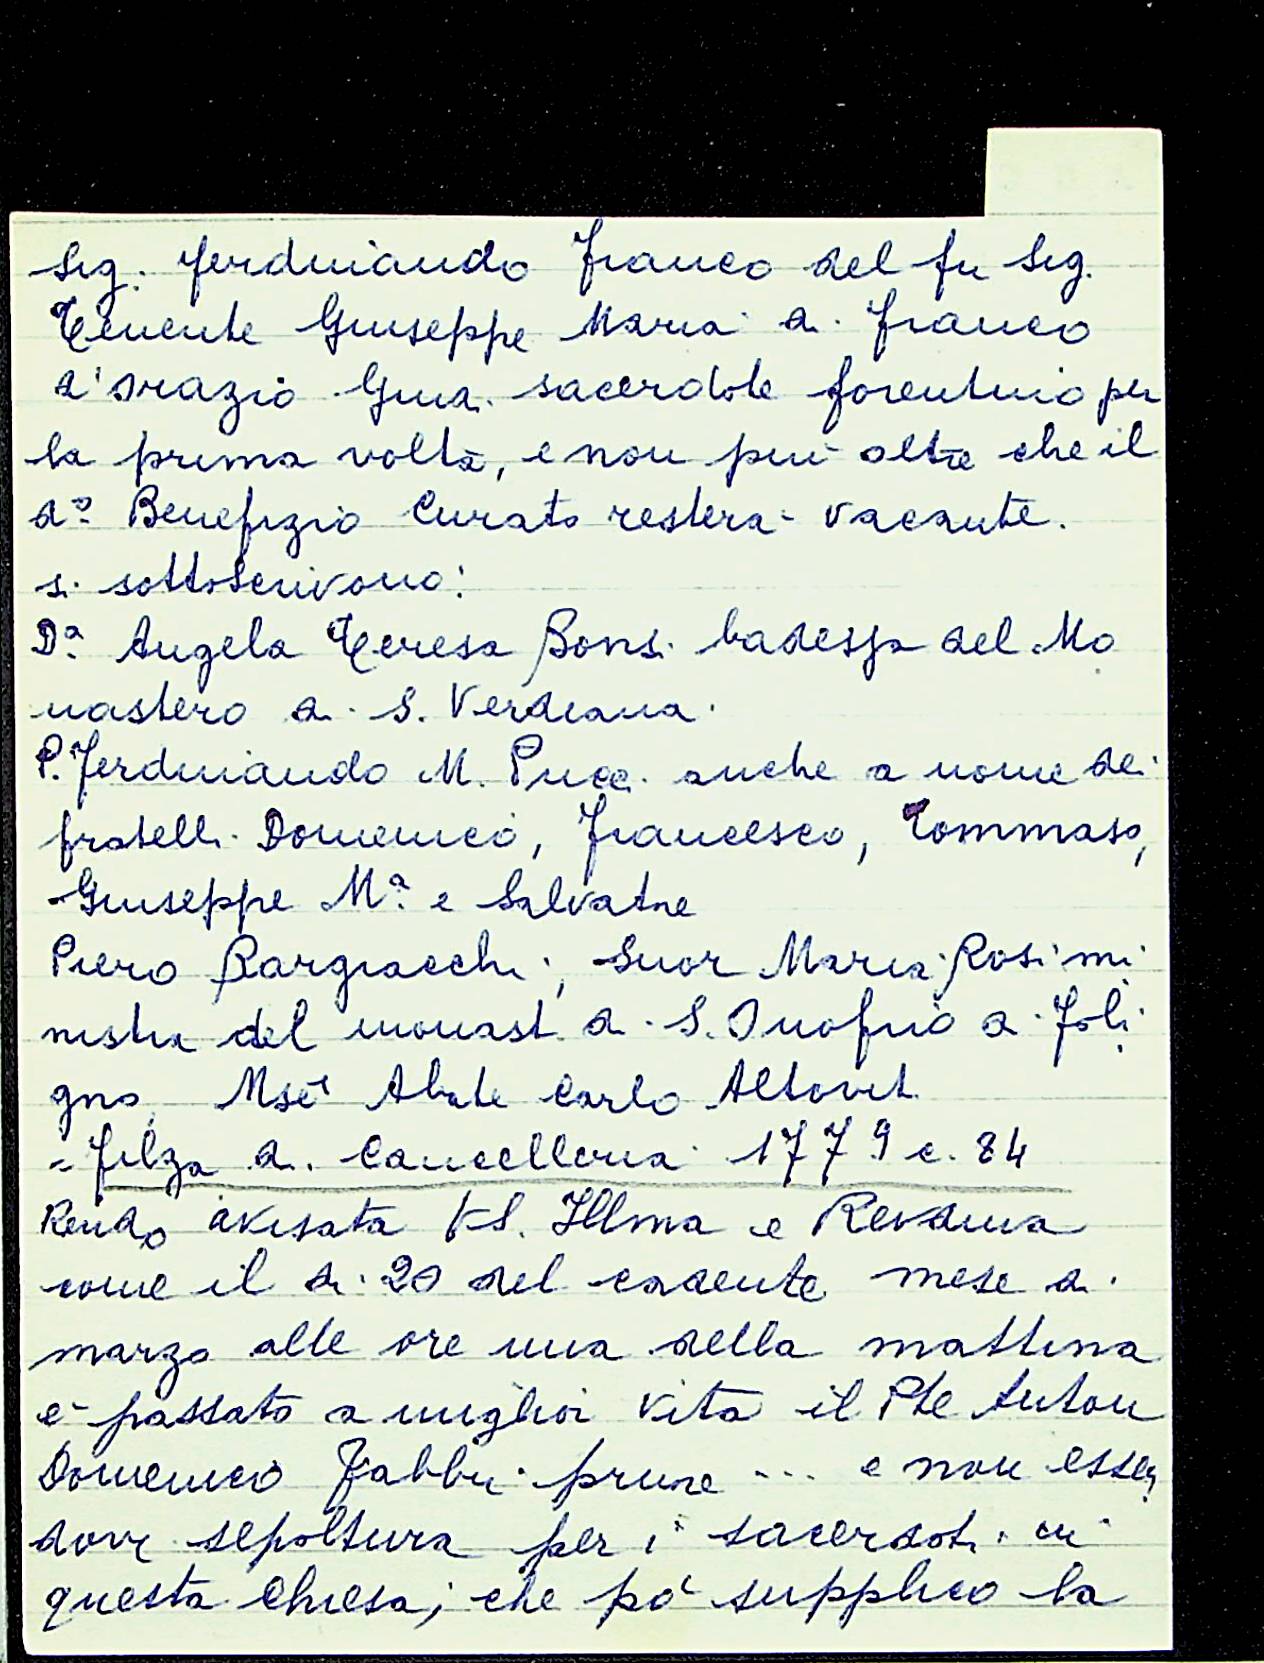 Sig. Ferdinando Franco del fu Sig.
Tenente Giuseppe Maria di Franco
d'Orazio sacerdote forentino per
la prima volta, e non più oltre che il
do Benefizio Curato resterà vacante.
si sottoscrivono:
Da. Angela Teresa Bonsi badessa del Mo
nastero di S. Verdiana.
P. Ferdinando M. Pucci anche a nome dei
fratelli Domenico, Francesco, Tommaso,
Giuseppe Ma. e Salvatore
Piero Bargiacchi; Suor Maria Rosi mi
nistra del monast. di S. Onofrio di Foli
gno, Abate Carlo Altoviti
= Filza di Cancelleria 1779 c. 84
Rendo avisata VS. Illma e Revdma
come il di 20 del cadente mese di
marzo alle ore una della mattina
è passato a miglior vita il Pte Anton
Domenico Fabbri priore ... e non essen
dovi sepoltura per i sacerdoti in
questa Chiesa; che pò supplico la